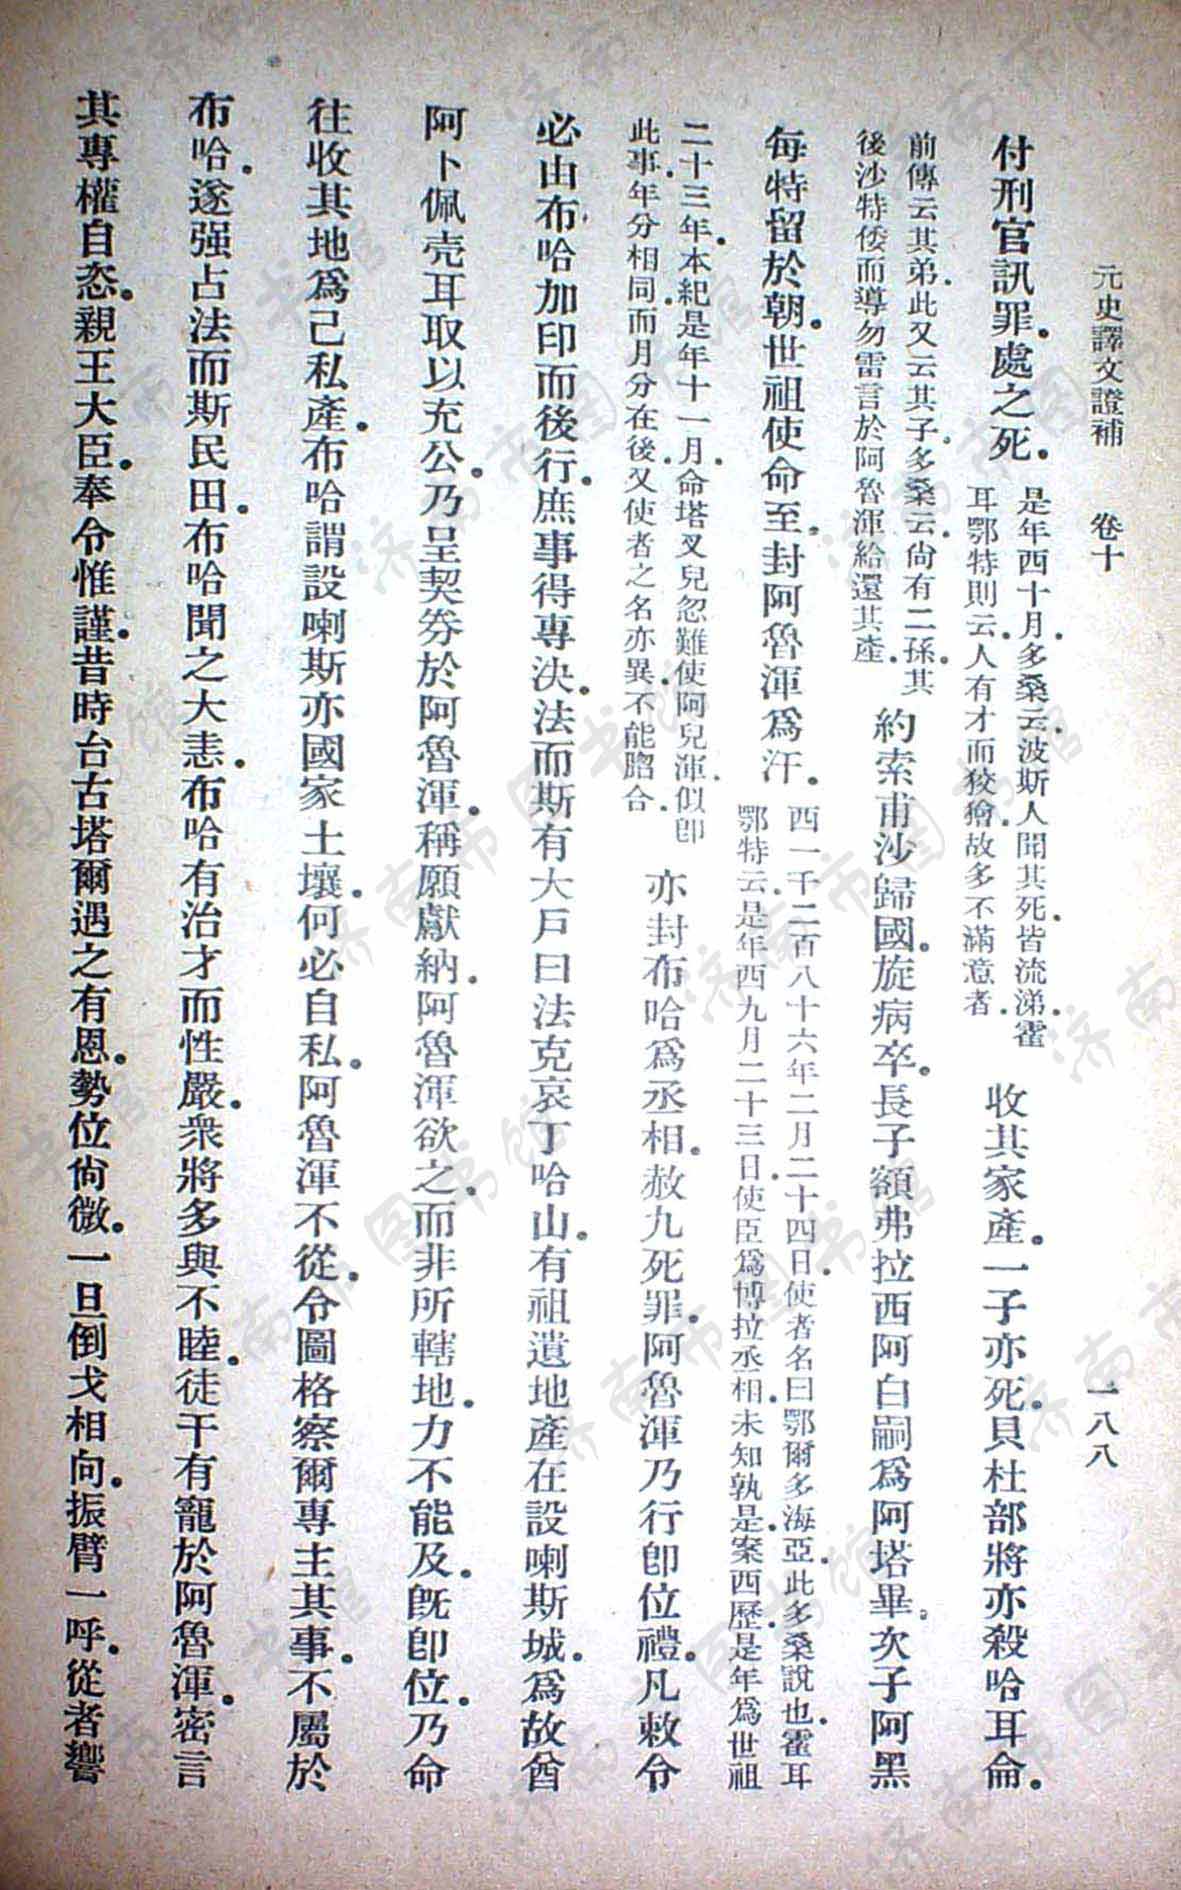 元史譯文證補　卷十　一八八
付刑官訊罪。處之死。是年西十月。多桑云。波斯人聞其死。皆流涕。霍耳鄂特則云。人有才而狡獪。故多不滿意者。收其家產。一子亦死。貝杜部將亦殺哈耳侖。
前傳云其弟。此又云其子。多桑云。尚有二孫。其後沙特倭而導勿雷言於阿魯渾。給還其產。約索甫沙歸國。旋病卒。長子額弗拉西阿白嗣爲阿塔畢。次子阿黑
每特留於朝。世祖使命至。封阿魯渾爲汗。西一千二百八十六年二月二十四日。使者名曰鄂爾多海亞。此多桑說也。霍耳鄂特云。是年西九月二十三日。使臣爲博拉丞相。未知孰是。案西歷是年爲世祖
二十三年。本紀是年十一月。命塔叉兒忽難使阿兒渾。似卽此事。年分相同。而月分在後。又使者之名亦異。不能脗合。亦封布哈爲丞相。赦九死罪。阿魯渾乃行卽位禮。凡敕令
必由布哈加印而後行。庶事得專決。法而斯有大戶曰法克哀丁哈山。有祖遺地產在設喇斯城。爲故酋
阿卜佩壳耳取以充公。乃呈契劵於阿魯渾。稱願獻納。阿魯渾欲之。而非所轄地。力不能及。旣卽位。乃命
往收其地爲己私產。布哈謂設喇斯亦國家土壤。何必自私。阿魯渾不從。令圖格察爾專主其事。不屬於
布哈。遂强占法而斯民田。布哈聞之大恚。布哈有治才而性嚴。衆將多與不睦。徒干有寵於阿魯渾。密言
其專權自恣。親王大臣。奉令惟謹。昔時台古塔爾遇之有恩。勢位尙微。一旦倒戈相向。振臂一呼。從者響